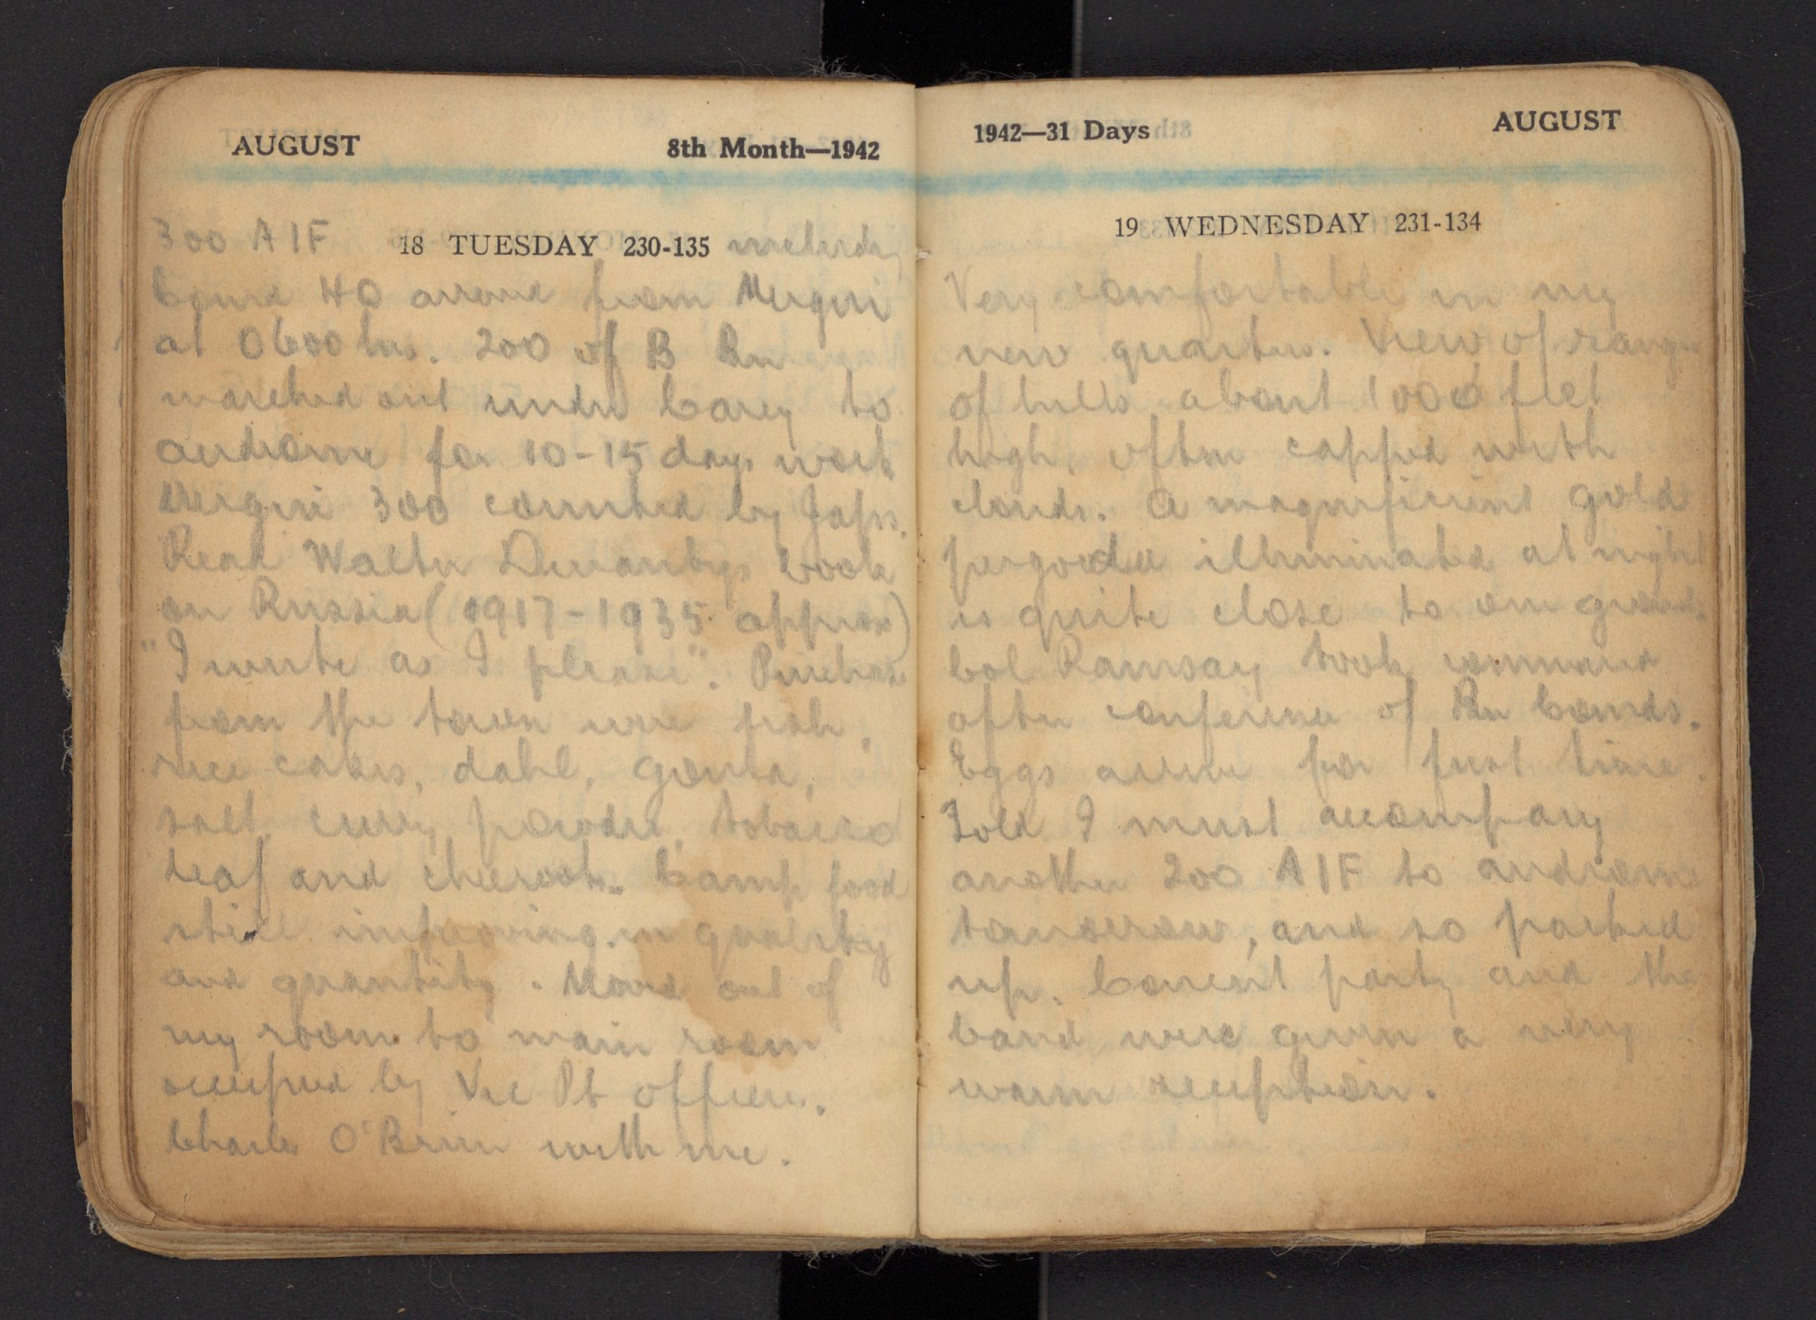 AUGUST 8th Month—1942
300 AIF 18 TUESDAY 230-135 including
Comd HQ arrive from Mergui
at 0600 hrs. 200 of B Bn
marched out under Carey to
airdrome for 10-15 days work
Mergui 300 counted by Japs.
Read Walter Duranty's book
on Russia (1917-1935 approx)
"I write as I please". Purchases
from the town were fish,
rice cakes, dahl,
salt, curry powder, tobacco
leaf and cheroots. Camp food
still improving in quality
and quantity. Moved out of
my room to main room
occupied by Vic Pt officers.
Charles O'Brien with me.
1942—31 Days AUGUST
19 WEDNESDAY 231-134
Very comfortable in my
new quarters. View of range
of hills about 1000 feet
high, often capped with
clouds. A magnificent gold
pergoda illuminated at night
is quite close to our grounds.
Col Ramsay took command
after conference of Bn Comds.
Eggs arrive for first time.
Told I must accompany
another 200 AIF to airdrome
tomorrow, and so packed
up. Concert party and the
band were given a very
warm reception.